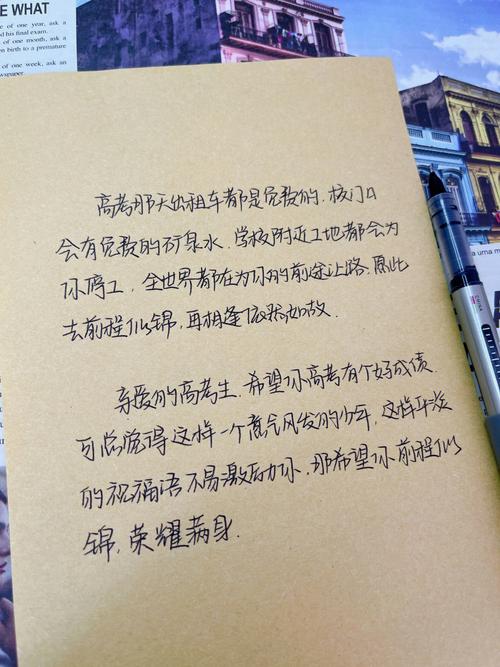 E WHAT
e of one year, ask a
d his final exam.
of one month, ask a
en birth to a premature
of one week, ask an
wspaper
高考那天出租车都是免费的, 校门口
会有免费的矿泉水, 学校附近工地都会为
你停工, 全世界都在为你的前途让路. 愿此
去前程似锦, 再相逢依然如故.
亲爱的高考生, 希望你高考有个好成绩.
可总觉得这样一个意气风发的少年, 这样平淡
的祝福语不易激励你, 那希望你前程似
锦, 荣耀满身.